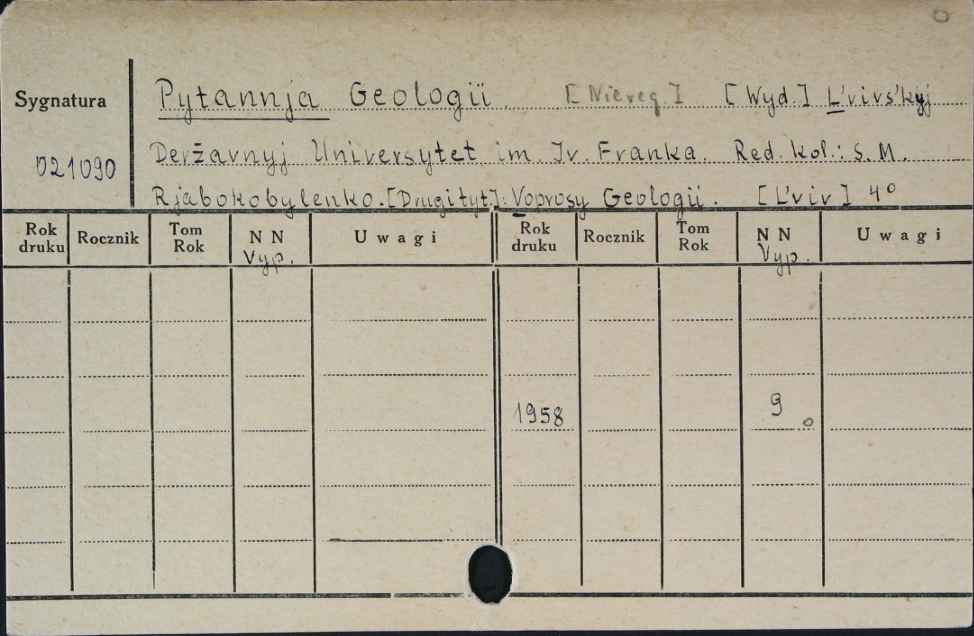 Sygnatura
021090
Pytannja Geologii [Niereg.] [Wyd.] L'vivs'kyj
Deržavnyj Universytet im. Iv. Franka. Red. kol.: S. M.
Rjabokobylenko. [Drugi tyt.]: Voprosy Geologii. [L'viv] 4°
Rok druku Rocznik Tom Rok NN Vyp. Uwagi Rok druku Rocznik Tom Rok NN Vyp. Uwagi
1958 9